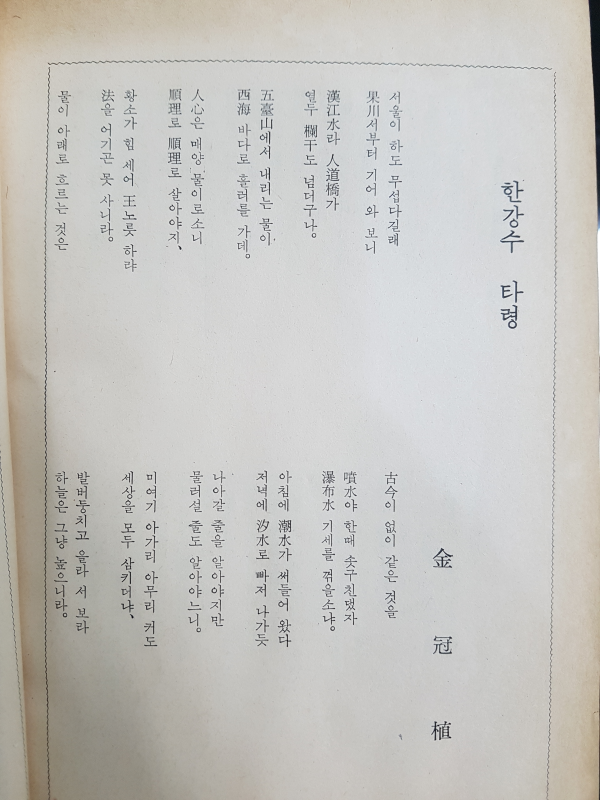 한강수 타령
金冠植
서울이 하도 무섭다길래
果川서부터 기어 와 보니
漢江水라 人道橋가
열두 欄干도 넘더구나.
五臺山에서 내리는 물이
西海 바다로 흘러를 가데.
人心은 매양 물이로소니
順理로 順理로 살아야지、
황소가 힘 세어 王노릇 하랴
法을 어기곤 못 사니라.
물이 아래로 흐르는 것은
古今이 없이 같은 것을
噴水야 한때 솟구친댔자
瀑布水 기세를 꺾을소냐.
아침에 潮水가 써들어 왔다
저녁에 汐水로 빠저 나가듯
나아갈 줄을 알아야지만
물러설 줄도 알아야느니.
미여기 아가리 아무리 커도
세상을 모두 삼키더냐、
발버둥치고 올라 서 보라
하늘은 그냥 높으니라.